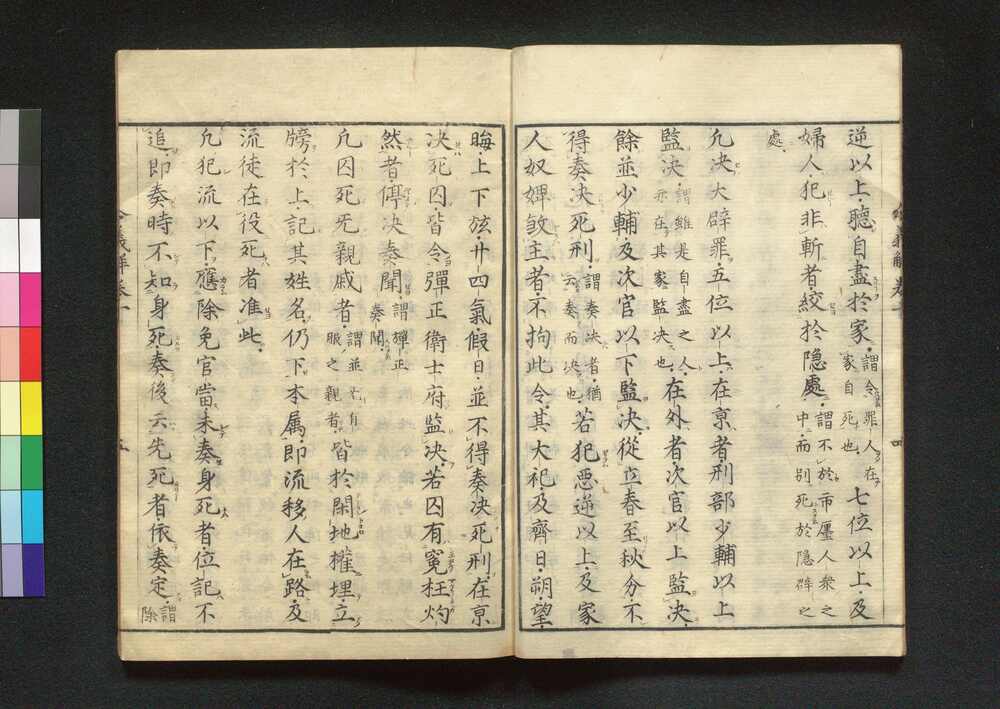 逆以上聽自盡於家謂令罪人在家自死也七位以上及
婦人犯非斬者絞於隐處謂不於市廛人衆之中而別死於隐僻之
處
凢决大辟罪五位以上在京者刑部少輔以上
監决謂雖是自盡之人亦在其家監决也在外者次官以上監决
餘並少輔及次官以下監决從立春至秋分不
得奏决死刑謂奏决者猶云奏而决也若犯悪逆以上及家
人奴婢敓主者不拘此令其大祀及齊日朔望
晦上下弦廿四氣假日並不得奏决死刑在京
决死囚皆令彈正衛士府監决若囚有寃枉灼
然者停决奏聞謂彈正奏聞
凢囚死旡親戚者謂並旡有服之親者皆於閑地權埋立
牓於上記其姓名仍下本属即流移人在路及
流徒在役死者准此
凢犯流以下應除免官當未奏身死者位記不
追即奏時不知身死奏後云先死者依奏定謂除